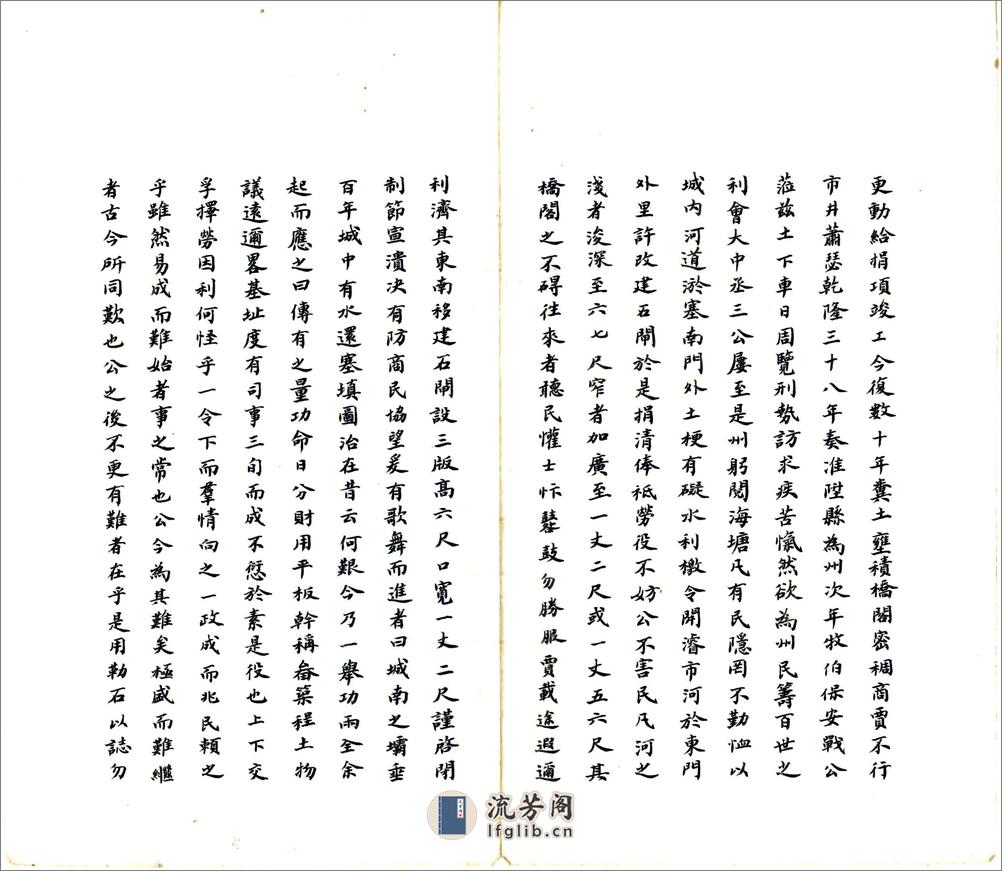 更動給捐項竣工今復數十年糞土壅積橋閣密稠商賈不行
市井蕭瑟乾隆三十八年奏准陞縣為州次年牧伯保安戰公
蒞兹土下車日周覽刑勢訪求疾苦愾然欲為州民籌百世之
利會大中丞三公屢至是州躬閱海塘凡有民隱罔不勤恤以
城内河道淤塞南門外土梗有礙水利檄令開濬市河於東門
外里許改建五閘於是捐清俸衹勞役不妨公不害民凡河之
淺者浚深至六七尺窄者加廣至一丈二尺或一丈五六尺其
橋閣之不碍往來者聽民懽士忭鼛鼓勿勝服賈載途遐邇
利濟其東南移建石閘設三版高六尺口寬一丈二尺謹啓閉
制節宣潰决有防商民協望爰有歌舞而進者曰城南之壩垂
百年城中有水還塞填圖治在昔云何艱今乃一舉功兩全余
起而應之曰傳有之量功命日分財用平板幹稱畚築程土物
議遠邇畧基址度有司事三旬而成不愆於素是役也上下交
孚擇勞因利何怪乎一令下而羣情向之一政成而兆民賴之
乎雖然易成而難始者事之常也公今為其難矣極盛而難繼
者古今所同歎也公之後不更有難者在乎是用勒石以誌勿
流芳阁
lfglib.cn